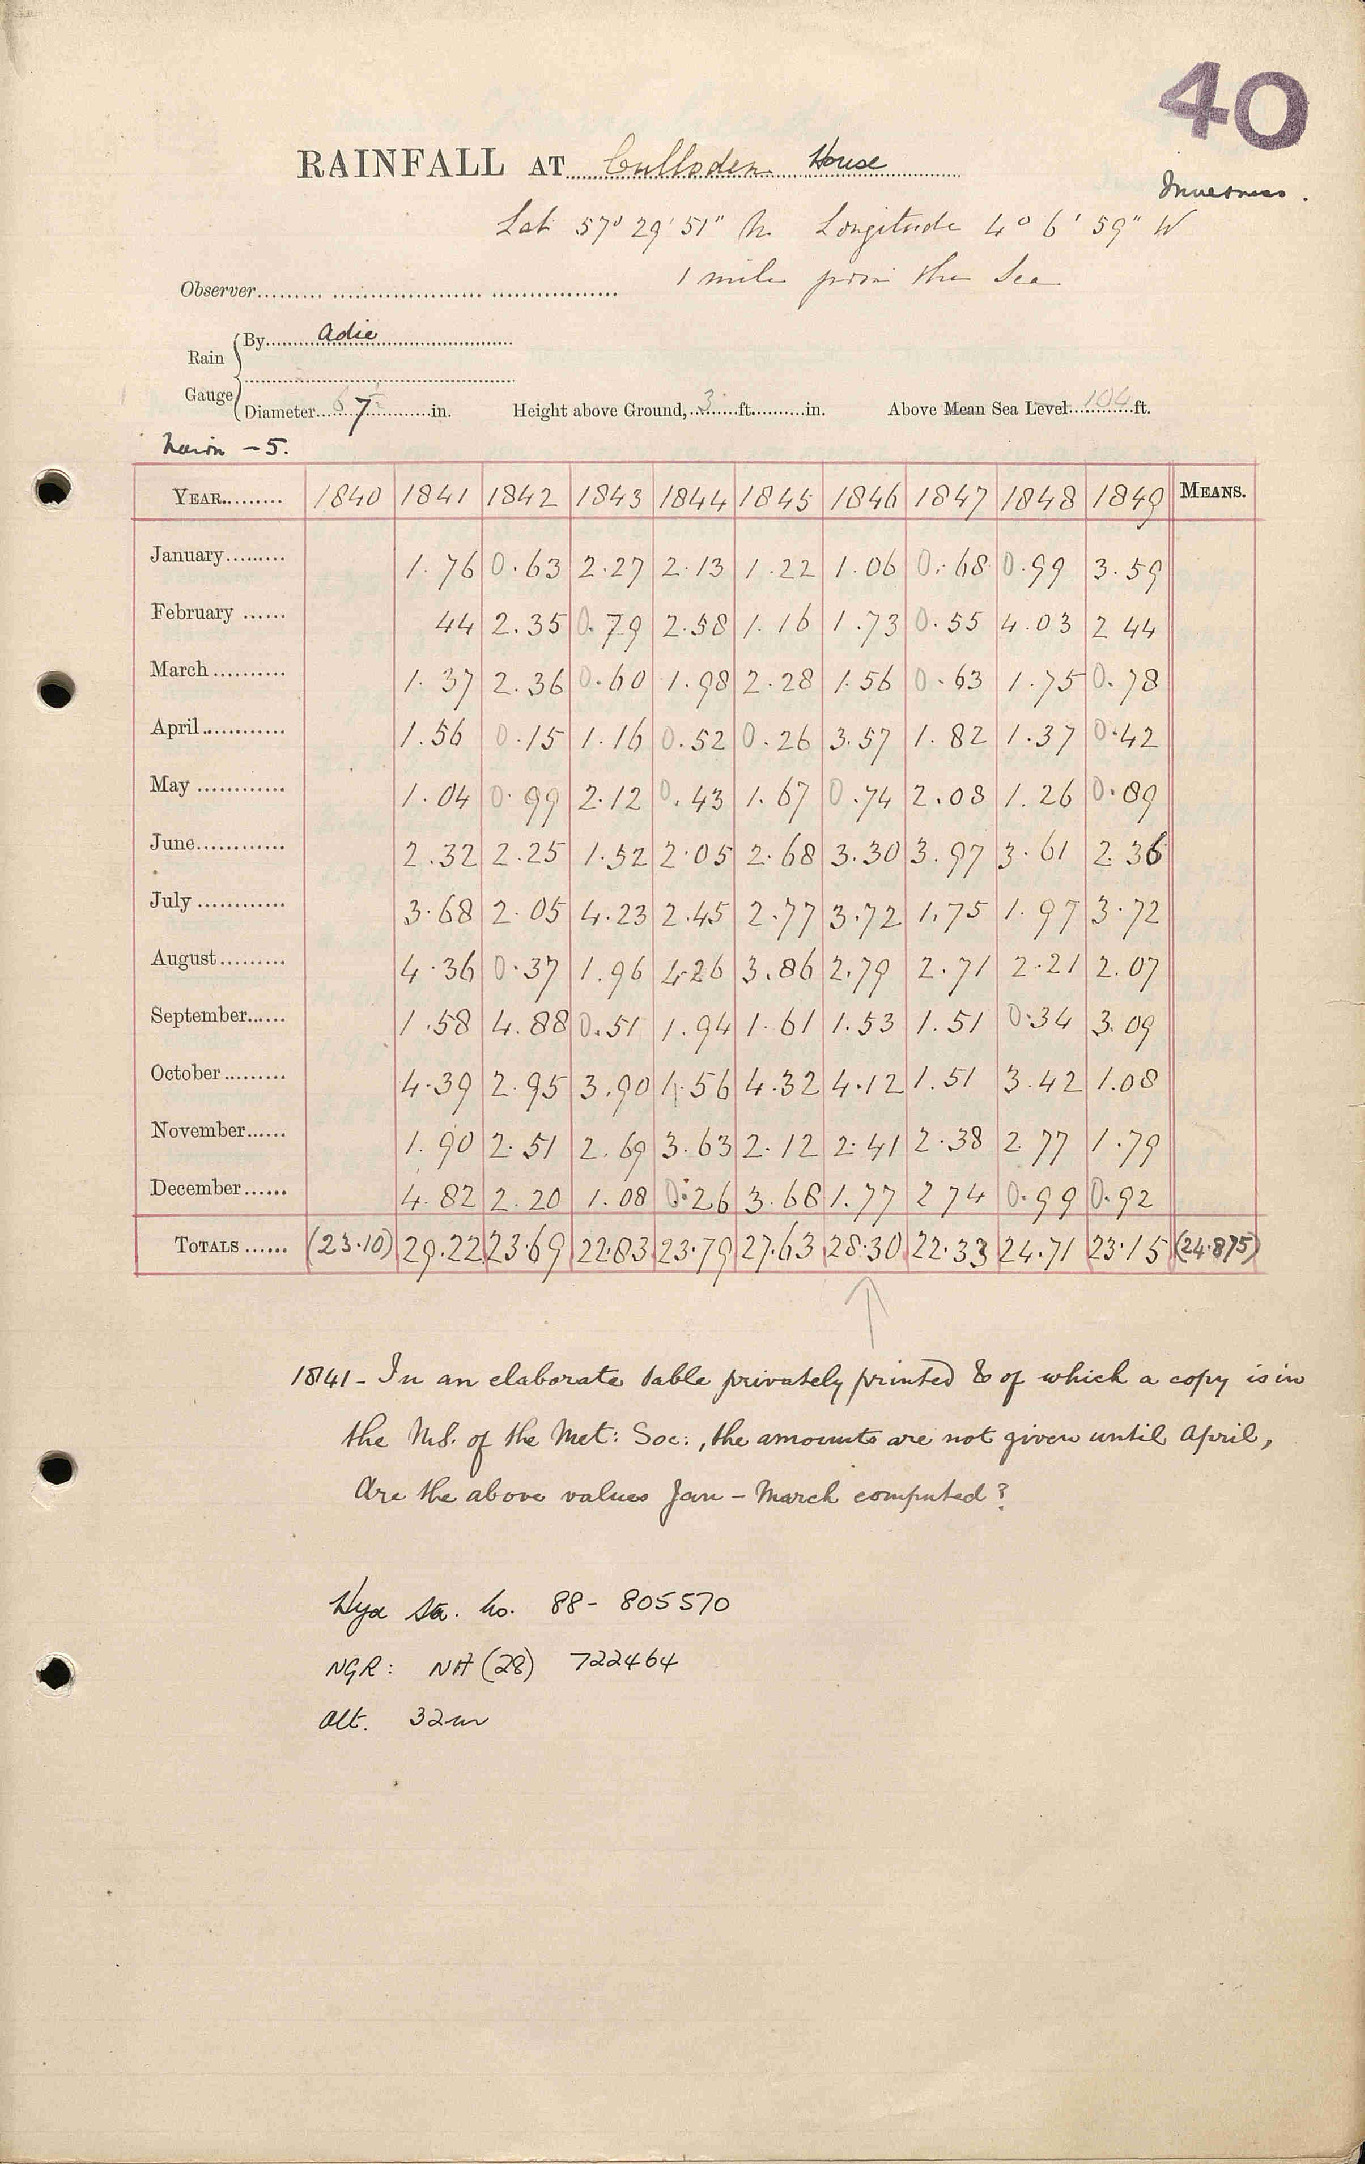 40
RAINFALL AT Culloden House
Inverness.
Lat 57° 29' 51" N Longitude 4° 6' 59" W
1 mile from the Sea
Observer
Rain Gauge
By Adie
Diameter 7 in. Height above Ground, 3 ft. in. Above Mean Sea Level 104 ft.
Nairn - 5.
YEAR 1840 1841 1842 1843 1844 1845 1846 1847 1848 1849 MEANS.
January 1.76 0.63 2.27 2.13 1.22 1.06 0.68 0.99 3.59
February 44 2.35 0.79 2.58 1.16 1.73 0.55 4.03 2 44
March 1.37 2.36 0.60 1.98 2.28 1.56 0.63 1.75 0.78
April 1.56 0.15 1.16 0.52 0.26 3.57 1.82 1.37 0.42
May 1.04 0.99 2.12 0.43 1.67 0.74 2.08 1.26 0.89
June 2.32 2.25 1.52 2.05 2.68 3.30 3.97 3.61 2.36
July 3.68 2.05 4.23 2.45 2.77 3.72 1.75 1.97 3.72
August 4.36 0.37 1.96 4.26 3.86 2.79 2.71 2.21 2.07
September 1.58 4.88 0.51 1.94 1.61 1.53 1.51 0.34 3.09
October 4.39 2.95 3.90 1.56 4.32 4.12 1.51 3.42 1.08
November 1.90 2.51 2.69 3.63 2.12 2.41 2.38 2.77 1.79
December 4.82 2.20 1.08 0.26 3.68 1.77 2 74 0.99 0.92
TOTALS (23.10) 29.22 23.69 22.83 23.79 27.63 28.30 22.33 24.71 23.15 (24.875)
1841 - In an elaborate table privately printed & of which a copy is in
the MS. of the Met: Soc:, the amounts are not given until April,
Are the above values Jan - March computed?
Hyd Sta. No. 88- 805570
NGR: NH (28) 722464
Alt. 32m